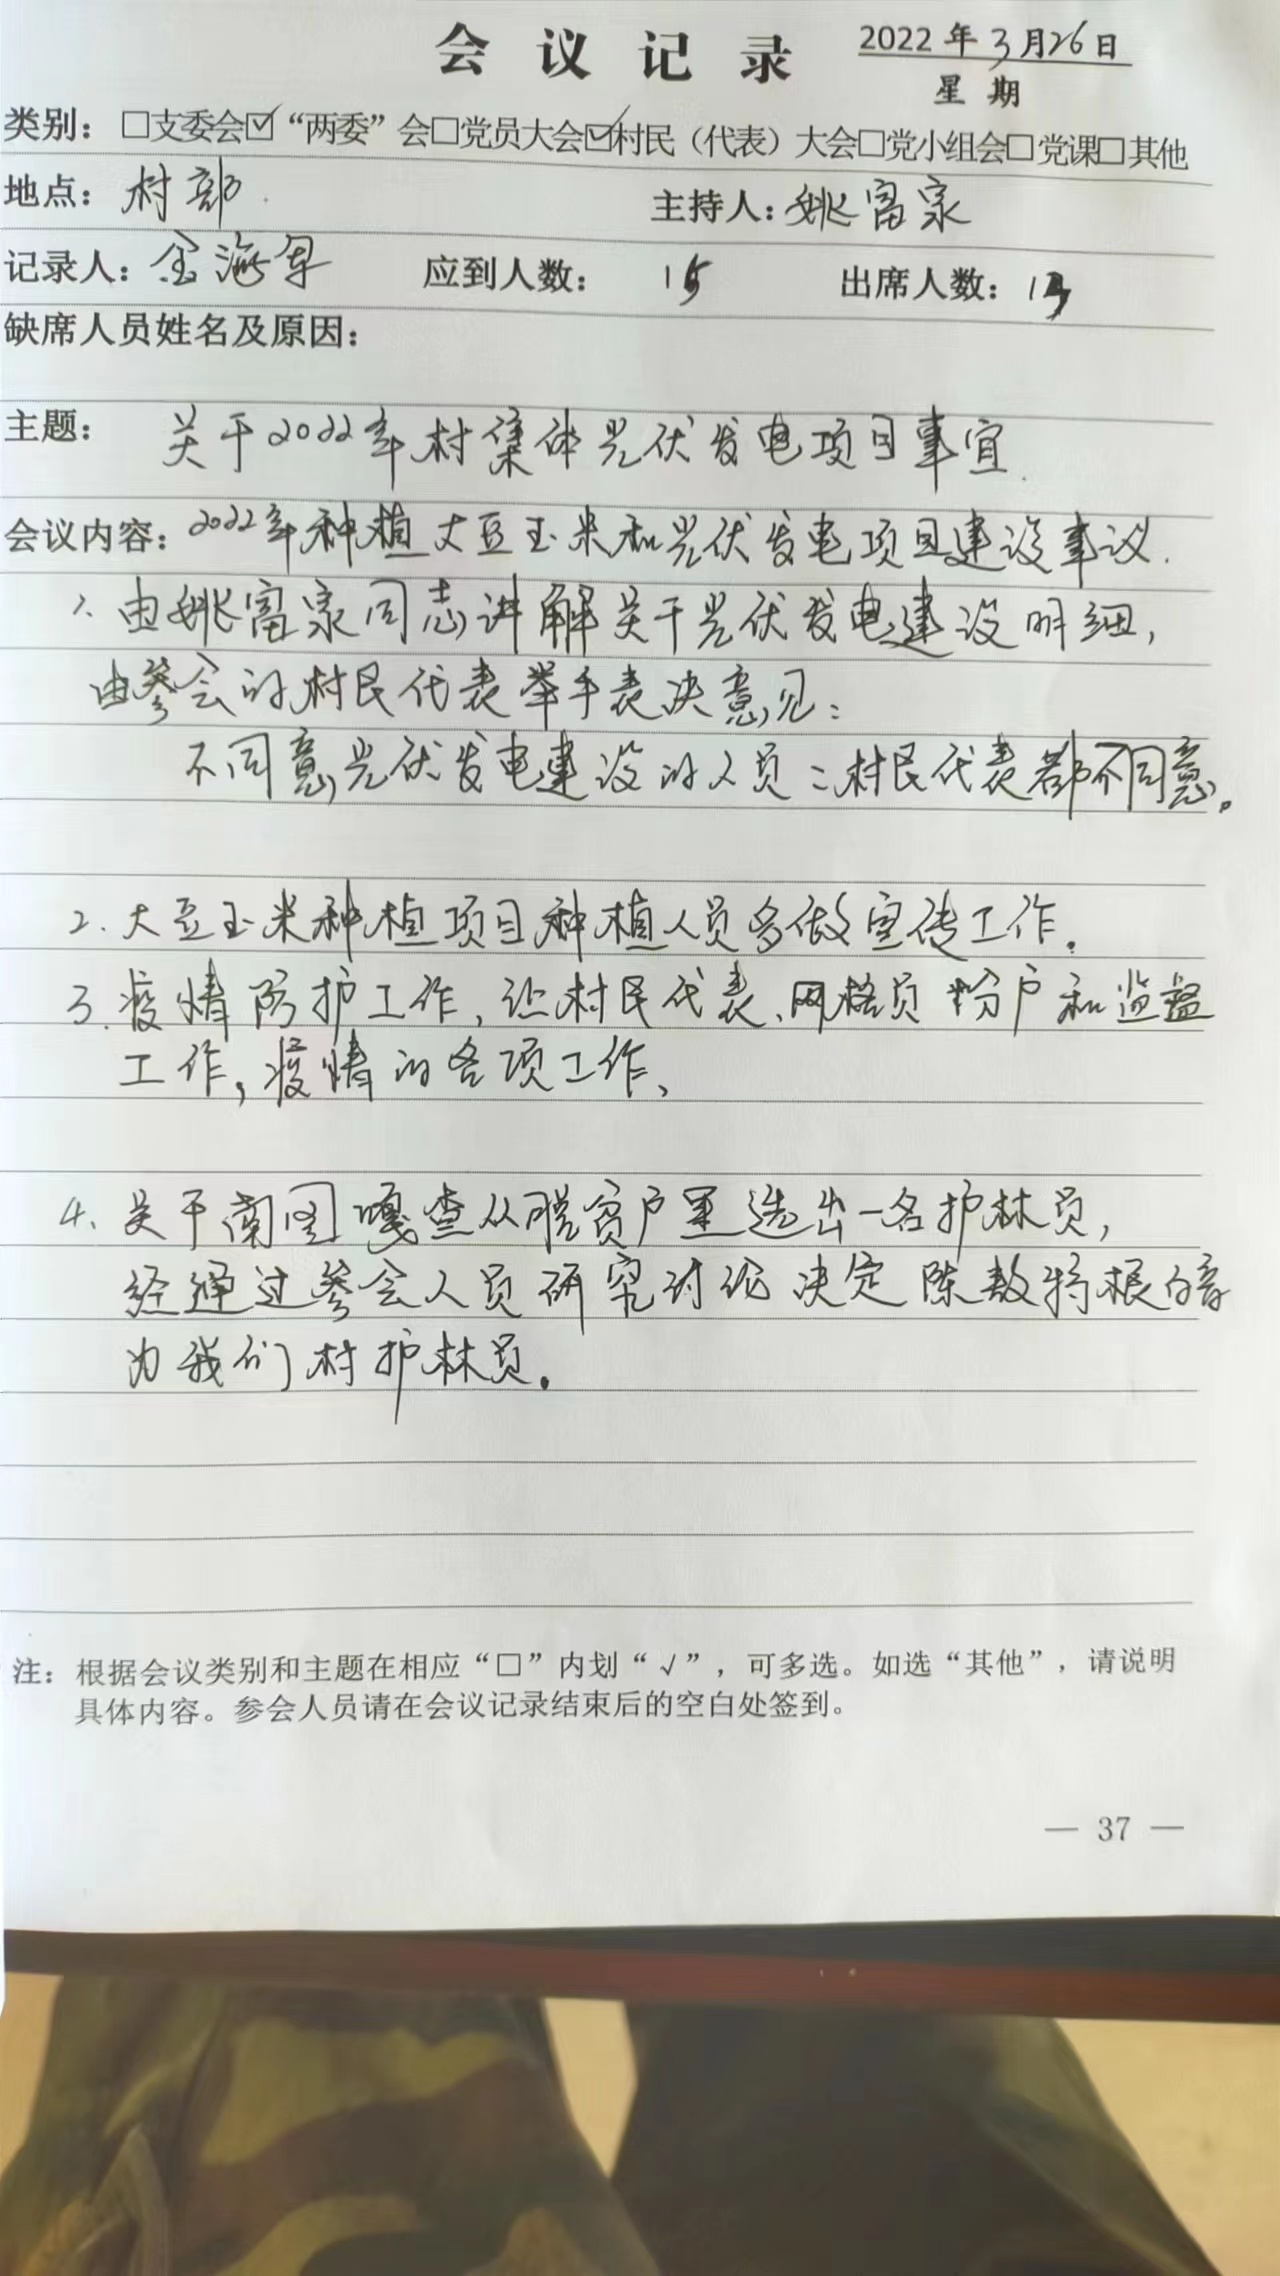 会议记录 2022年3月26日
星期
类别：□支委会☑“两委”会□党员大会☑村民（代表）大会□党小组会□党课□其他
地点：村部 主持人：姚富家
记录人：金海军 应到人数：15 出席人数：13
缺席人员姓名及原因：
主题：关于2022年村集体光伏发电项目事宜.
会议内容：2022年种植大豆玉米和光伏发电项目建设事议.
1、由姚富家同志讲解关于光伏发电建设明细，
由参会的村民代表举手表决意见：
不同意光伏发电建设的人员：村民代表都不同意。
2.大豆玉米种植项目种植人员多做宣传工作。
3.疫情防护工作，让村民代表、网格员 分户和监督
工作，疫情的各项工作、
4、关于南图嘎查从脱贫户里选出一名护林员，
经通过参会人员研究讨论决定陈敖特根
为我们村护林员。
注：根据会议类别和主题在相应“□”内划“√”，可多选。如选“其他”，请说明
具体内容。参会人员请在会议记录结束后的空白处签到。
— 37 —